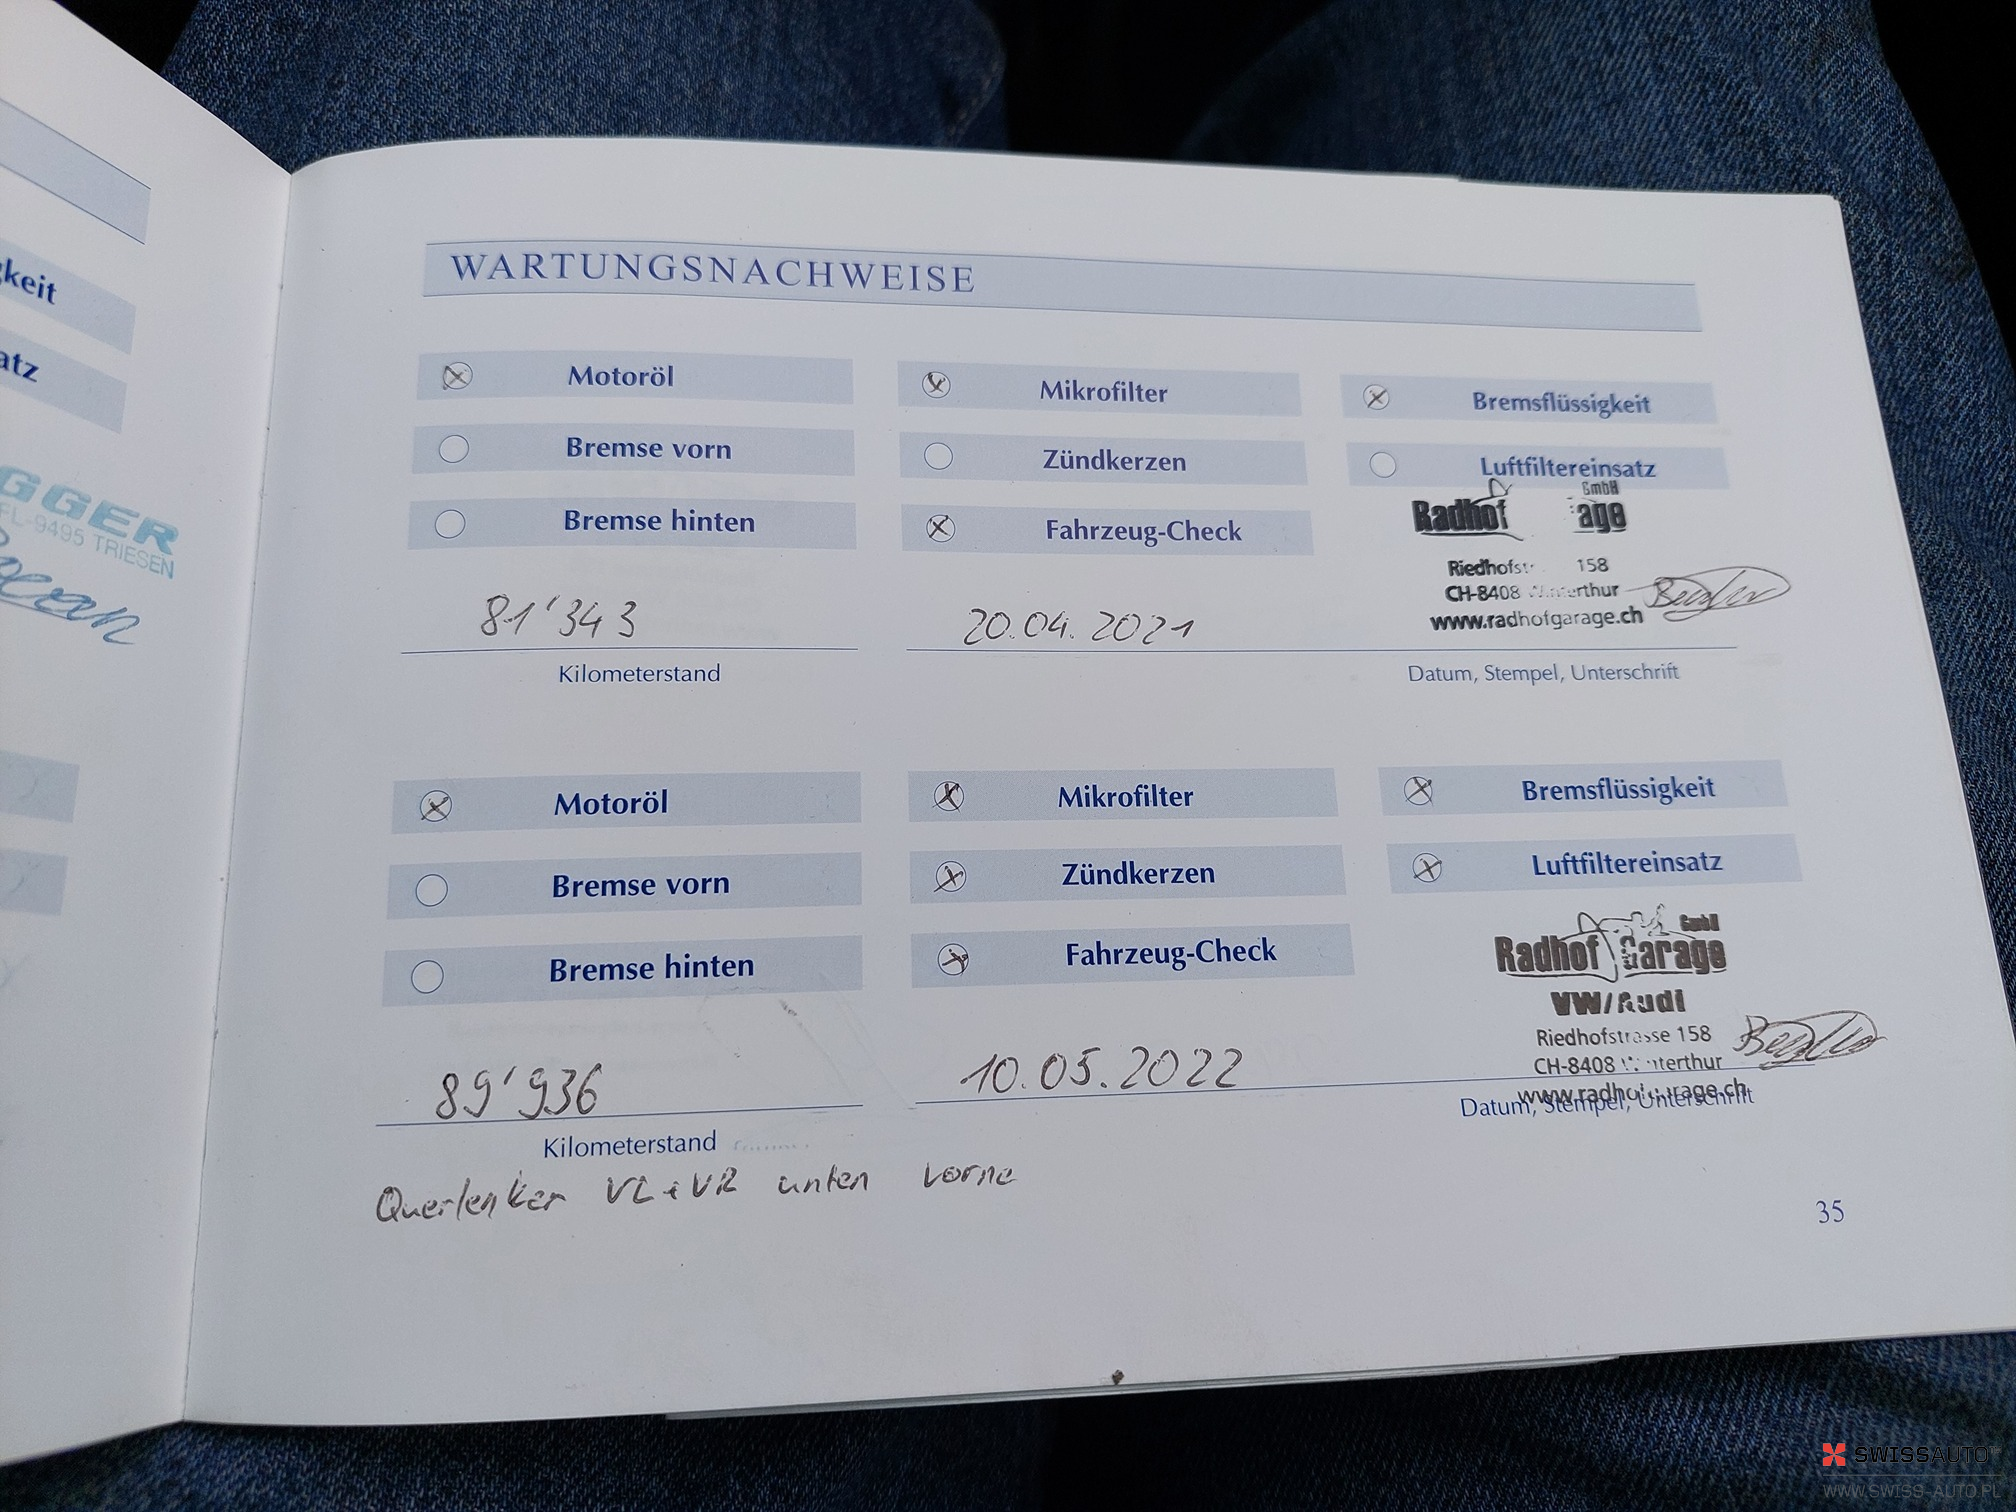 keit
atz
GGER
FL-9495 TRIESEN
WARTUNGSNACHWEISE
Motoröl
Mikrofilter
Bremsflüssigkeit
Bremse vorn
Zündkerzen
Luftfiltereinsatz
Bremse hinten
Fahrzeug-Check
GmbH
Radhof age
Riedhofst 158
CH-8408 terthur
www.radhofgarage.ch
81'343
20.04.2021
Kilometerstand
Datum, Stempel, Unterschrift
Motoröl
Mikrofilter
Bremsflüssigkeit
Bremse vorn
Zündkerzen
Luftfiltereinsatz
Bremse hinten
Fahrzeug-Check
GmbH
Radhof Garage
VW/Audi
Riedhofstrasse 158
CH-8408 Winterthur
www.radhofgarage.ch
89'936
10.05.2022
Kilometerstand
Datum, Stempel, Unterschrift
Querlenker VL+VR unten vorne
35
SWISSAUTO
WWW.SWISS-AUTO.PL